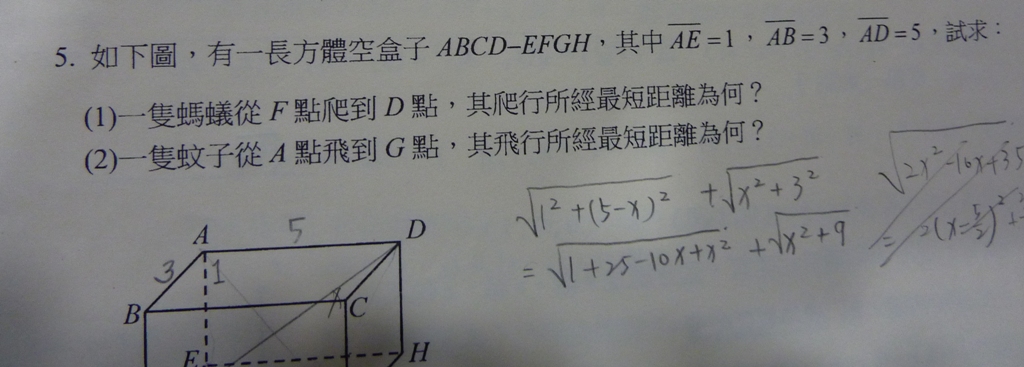 5. 如下圖，有一長方體空盒子 ABCD–EFGH，其中 AE=1，AB=3，AD=5，試求：
(1)一隻螞蟻從 F 點爬到 D 點，其爬行所經最短距離為何？
(2)一隻蚊子從 A 點飛到 G 點，其飛行所經最短距離為何？
√(1²+(5-x)²) + √(x²+3²)
= √(1+25-10x+x²) + √(x²+9)
√(2x²-10x+35
= 2(x-5/2)²+
A 5 D
3 1
B C
E H